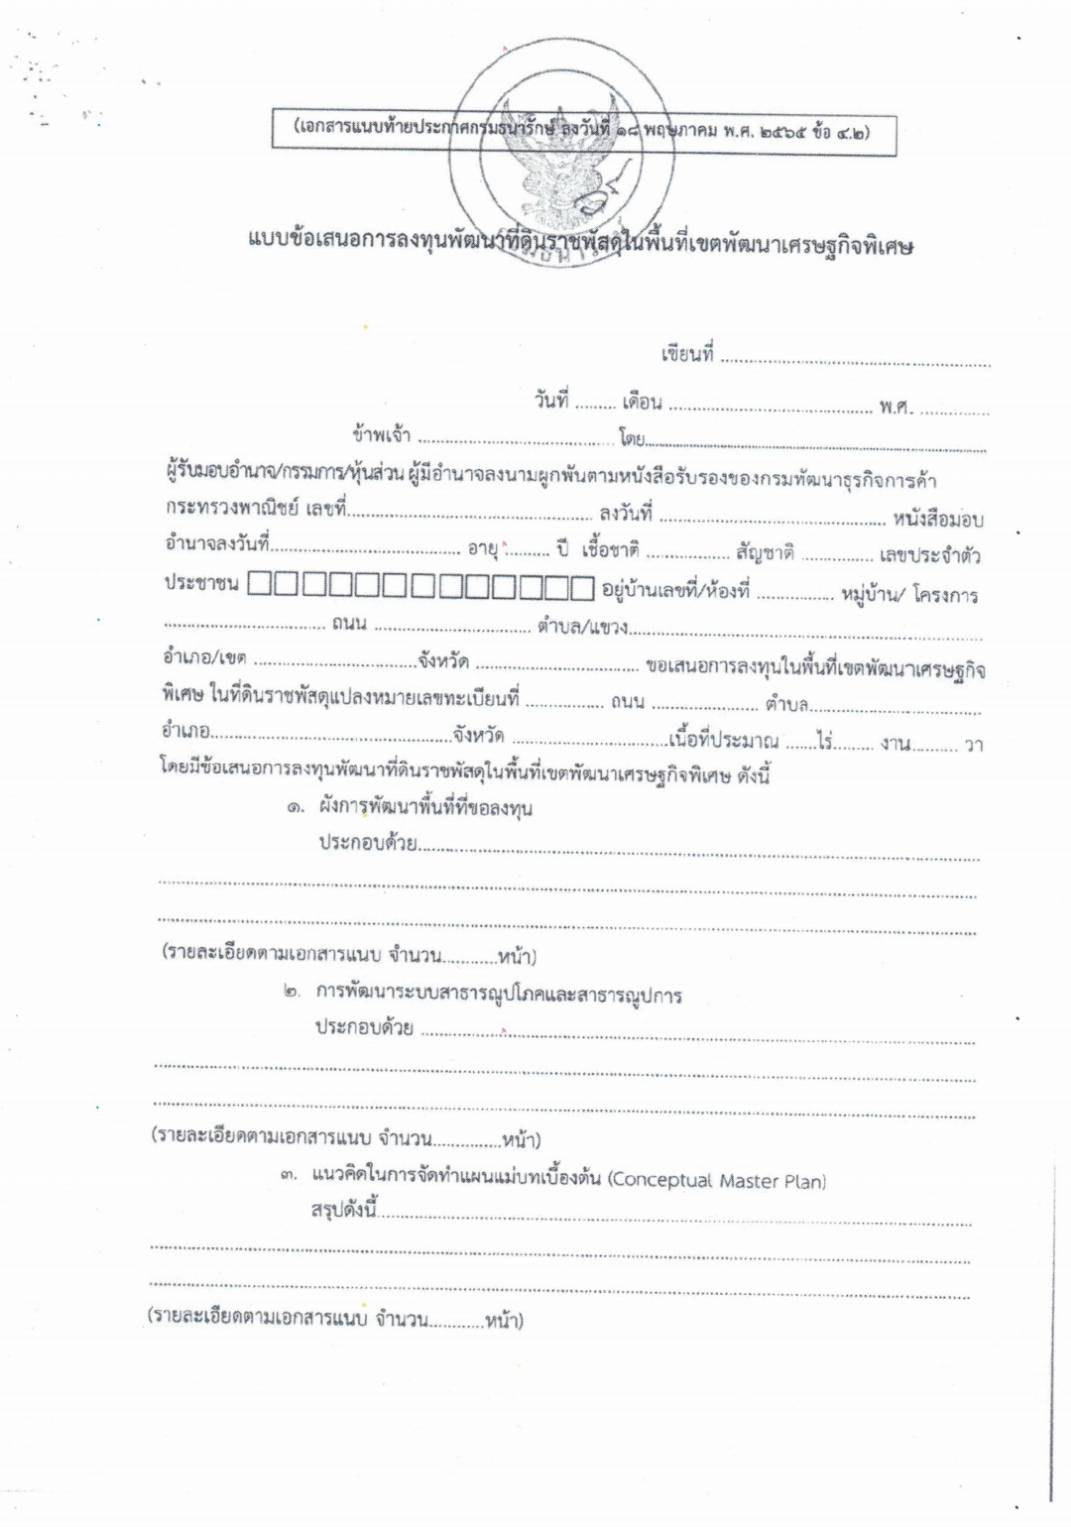 (เอกสารแนบท้ายประกาศกรมธนารักษ์ ลงวันที่ ๑๘ พฤษภาคม พ.ศ. ๒๕๖๕ ข้อ ๔.๒)
แบบข้อเสนอการลงทุนพัฒนาที่ดินราชพัสดุในพื้นที่เขตพัฒนาเศรษฐกิจพิเศษ
เขียนที่ ..................................................
วันที่ ......... เดือน .......................................... พ.ศ. ..............
ข้าพเจ้า ........................................ โดย......................................................................
ผู้รับมอบอำนาจ/กรรมการ/หุ้นส่วน ผู้มีอำนาจลงนามผูกพันตามหนังสือรับรองของกรมพัฒนาธุรกิจการค้า
กระทรวงพาณิชย์ เลขที่.................................................. ลงวันที่ .............................................. หนังสือมอบ
อำนาจลงวันที่....................................... อายุ .......... ปี เชื้อชาติ ................. สัญชาติ ............... เลขประจำตัว
ประชาชน □□□□□□□□□□□□□ อยู่บ้านเลขที่/ห้องที่ ................ หมู่บ้าน/ โครงการ
................................. ถนน ................................ ตำบล/แขวง........................................................................
อำเภอ/เขต .................................จังหวัด ................................. ขอเสนอการลงทุนในพื้นที่เขตพัฒนาเศรษฐกิจ
พิเศษ ในที่ดินราชพัสดุแปลงหมายเลขทะเบียนที่ ................ ถนน ...................... ตำบล...................................
อำเภอ.................................................จังหวัด ................................เนื้อที่ประมาณ .......ไร่......... งาน.......... วา
โดยมีข้อเสนอการลงทุนพัฒนาที่ดินราชพัสดุในพื้นที่เขตพัฒนาเศรษฐกิจพิเศษ ดังนี้
๑. ผังการพัฒนาพื้นที่ที่ขอลงทุน
ประกอบด้วย....................................................................................................................
(รายละเอียดตามเอกสารแนบ จำนวน...........หน้า)
๒. การพัฒนาระบบสาธารณูปโภคและสาธารณูปการ
ประกอบด้วย ..................................................................................................................
(รายละเอียดตามเอกสารแนบ จำนวน..............หน้า)
๓. แนวคิดในการจัดทำแผนแม่บทเบื้องต้น (Conceptual Master Plan)
สรุปดังนี้..........................................................................................................................
(รายละเอียดตามเอกสารแนบ จำนวน...........หน้า)